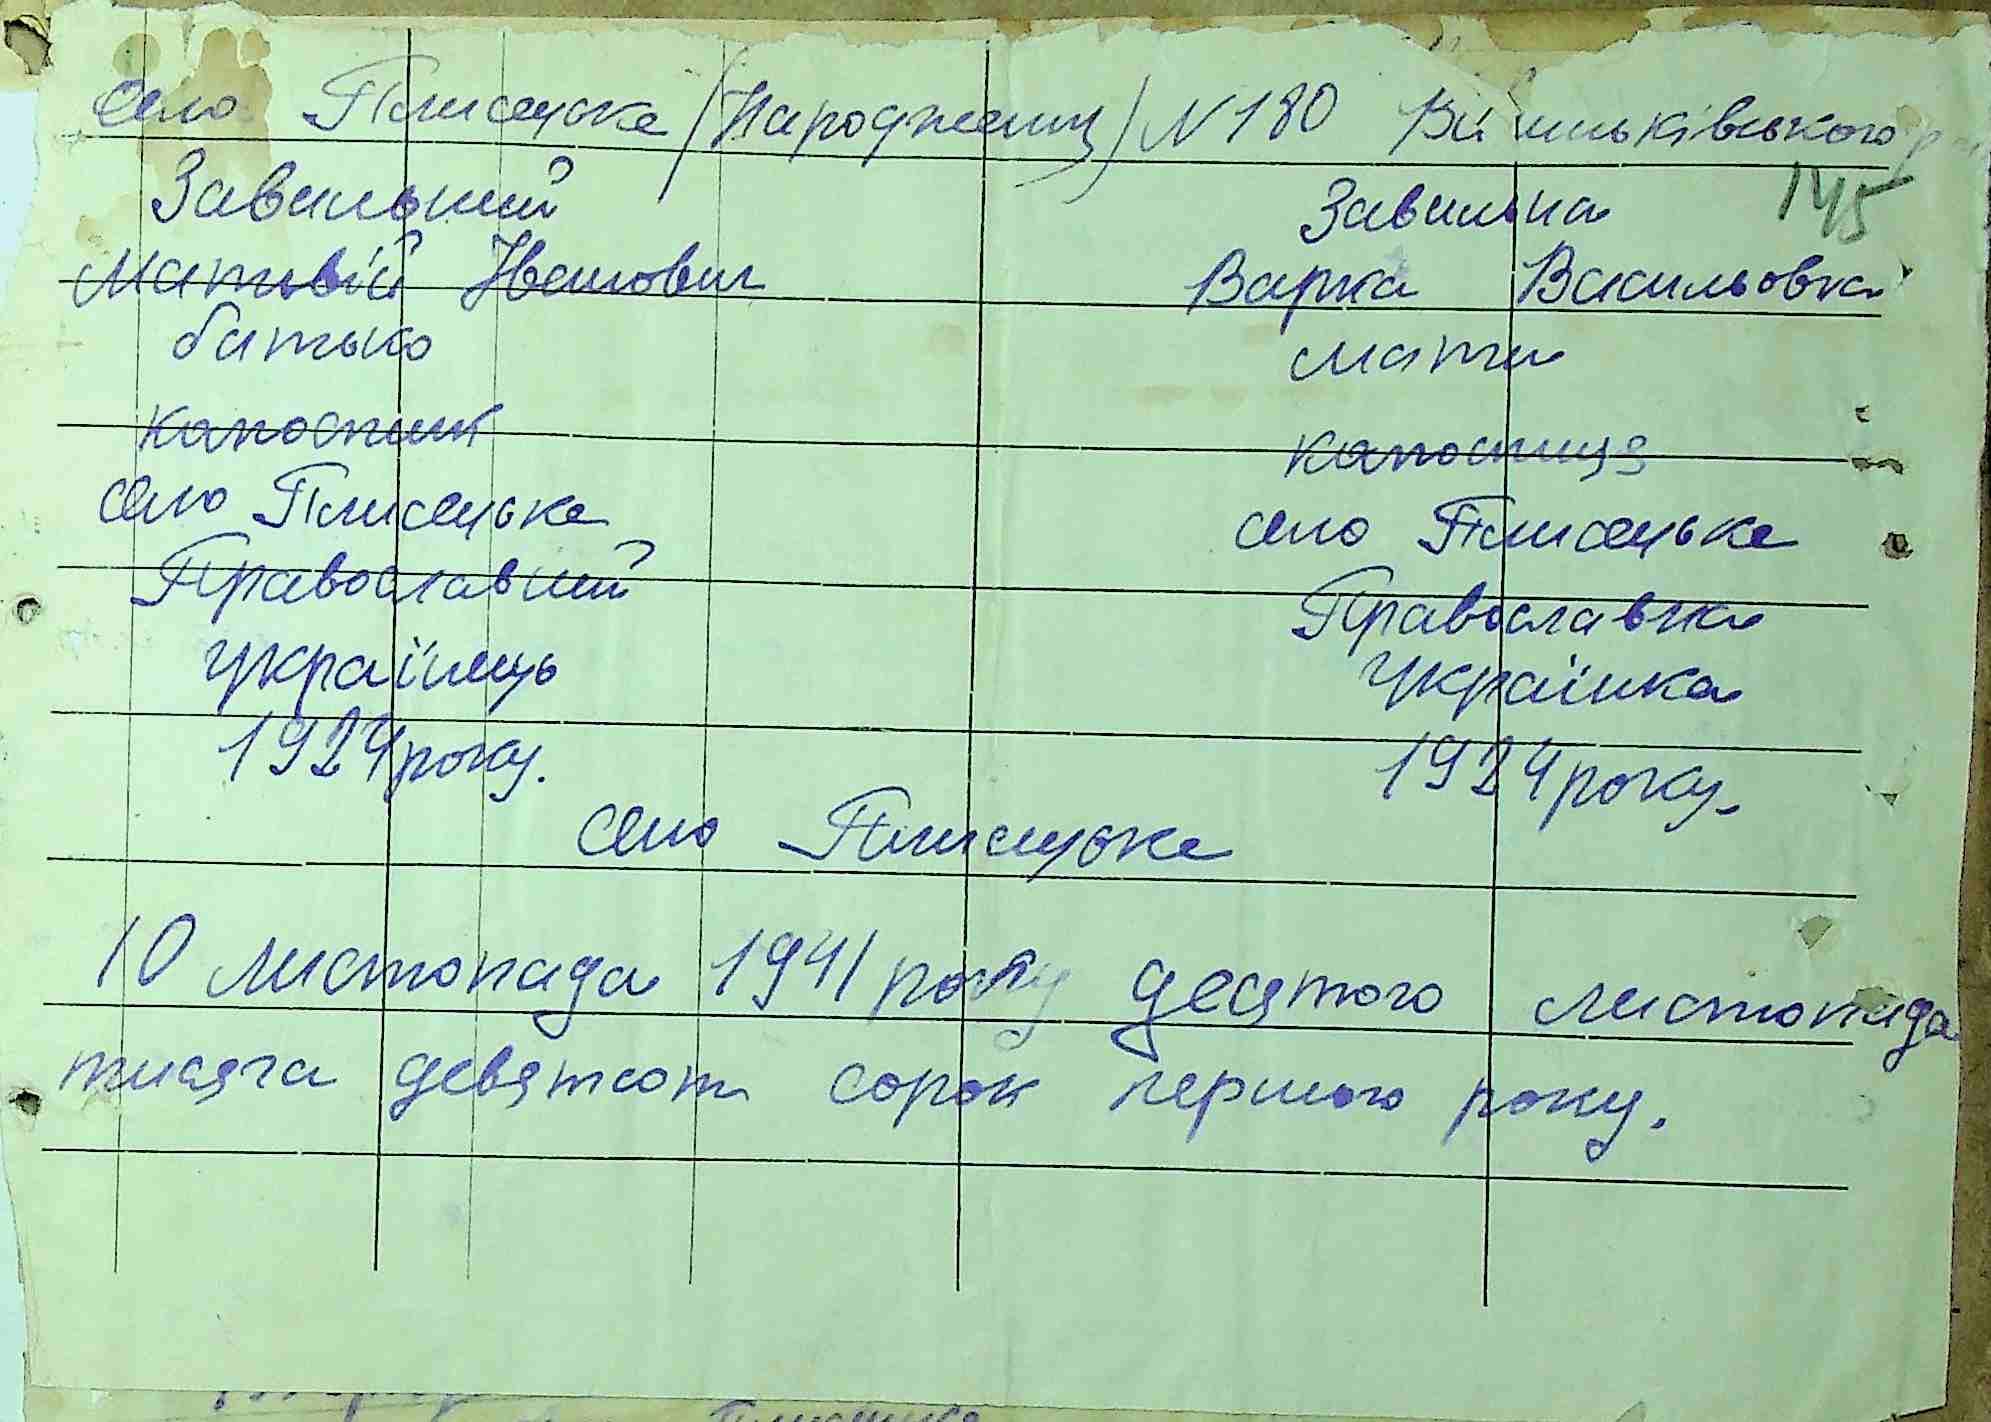 село Плисецьке (Народженц) N 180
145
Завильний Завильна
Матвій Іванович Варка Васильовна
батько мати
село Плисецьке село Плисецьке
Православний Православна
українець українка
1924 року. 1924 року.
село Плисецьке
10 листопада 1941 року десятого листопада
тисяча девятсот сорок першого року.